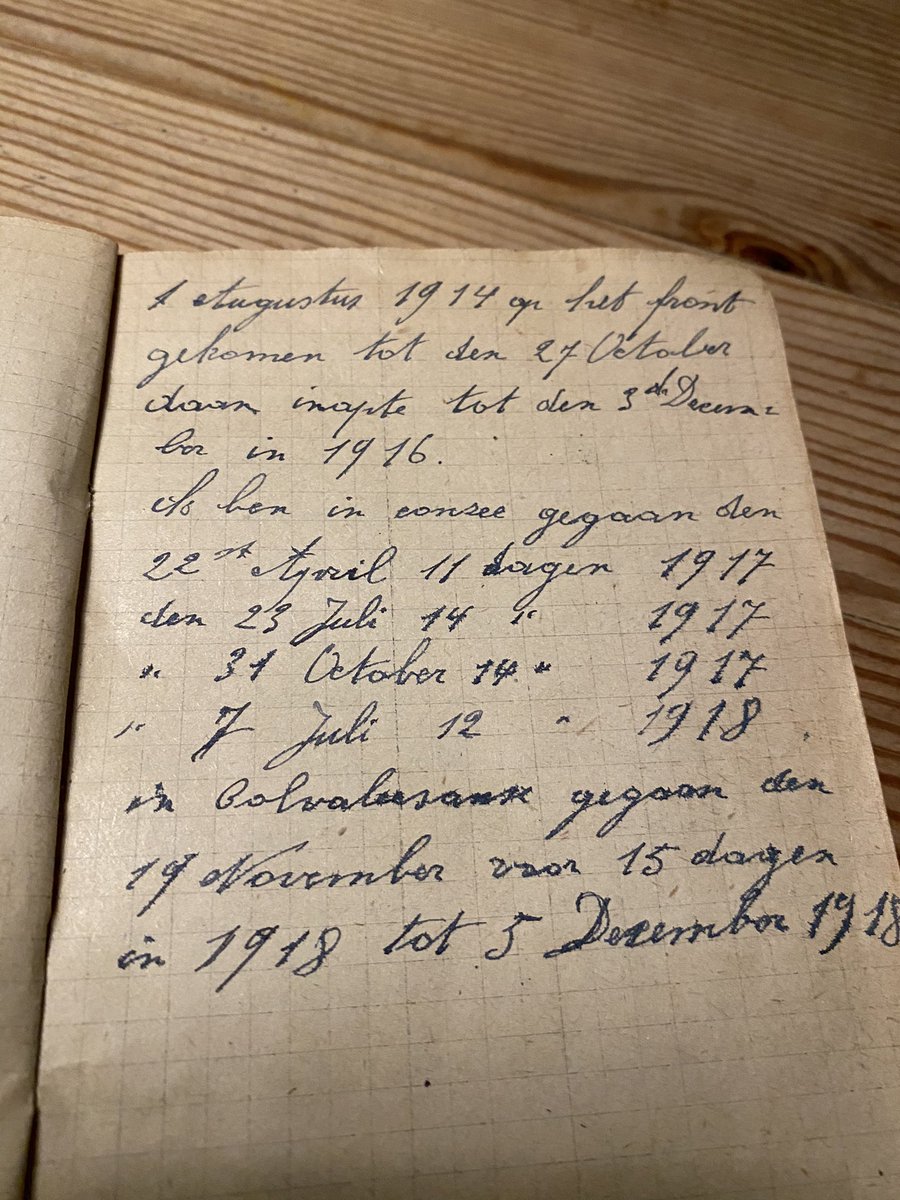 1 Augustus 1914 op het front
gekomen tot den 27 October
daan inapte tot den 3de Decem=
ber in 1916.
Ik ben in conzee gegaan den
22st April 11 dagen 1917
den 23 Juli 14 " 1917
" 31 October 14 " 1917
" 7 Juli 12 " 1918
in Colvalesanse gegaan den
19 November voor 15 dagen
in 1918 tot 5 Dezember 1918